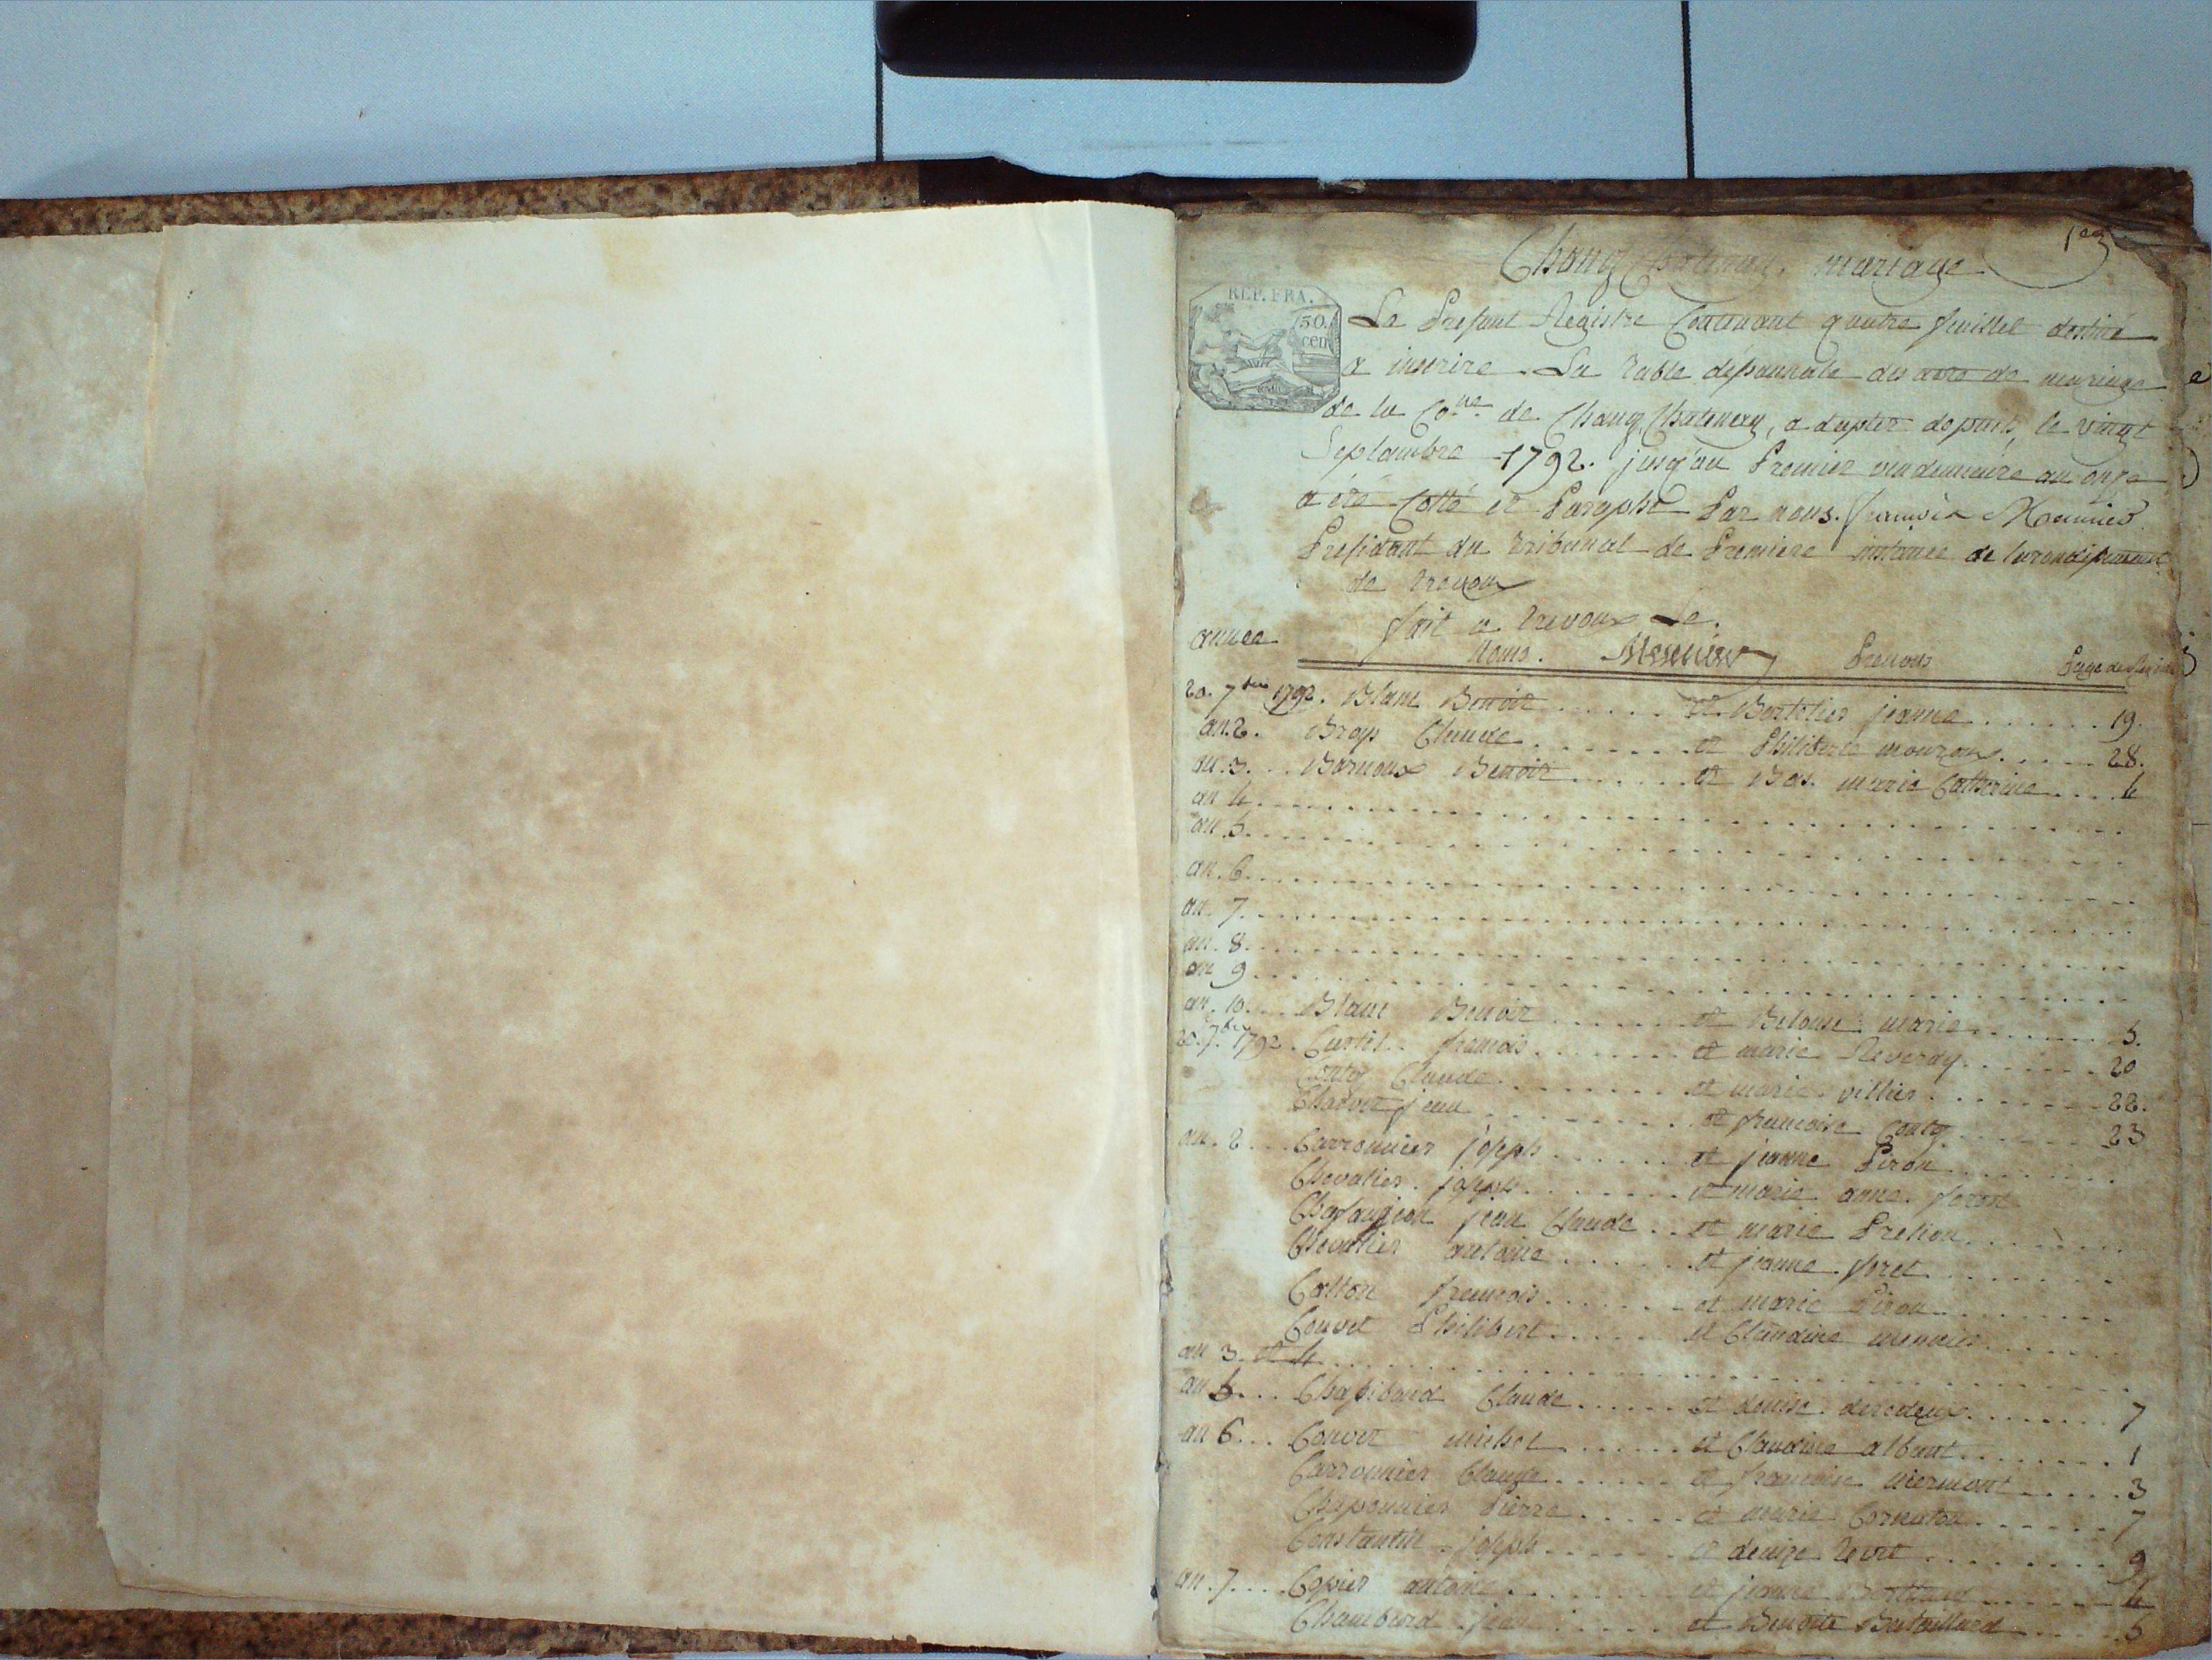 1er
Chanoz Chatenay. mariage
REP. FRA.
50.
cen
Le Present Registre Contenant quatre feuillet destiné
a inscrire La Table dessannale des acte de mariage
de la Cone de Chanoz Chatenay, a dapter depuis le vingt
Septambre 1792. jusq'au Premier vendemiaire an onze
a été Cotté et Paraphé Par nous. francois Meunier
Presidant du Tribunal de Premiere instance de larondissement
de Trevoux
fait a Trevoux Le.
année Noms. Prenoms Page de Registre
20. 7bre 1792. Blanc Benoit et Bertelier jeanne 19.
an. 2. Brop Claude et Philiberte 28.
an. 3. Barnoux Benoit et Bas. marie Catherine 4
an 4
an. 5
an. 6
an. 7
an. 8
an 9
an. 10. Blanc Benoit et Belouse marie 5.
20. 7bre 1792. Curtil francois et marie Reverdy 20
Couty Claude et marie villier 22.
jean et francoise Couty 23
an. 2 Carronnier joseph et jeanne Piron
Chevalier. joseph et marie anne. foret
jean Claude et marie Prelion
Chevalier antoine et jeanne. foret
Catton francois et marie Piron
Couvet Philibert et Claudine meunier
an 3. et 4
an 5 Chapibard Claude et denise 7
an 6 Couvet michel et Claudine alban 1
Carronnier Claude et francoise miermont 3
Chaponnier Pierre et marie Cornaton 7
Constantin joseph et denize 9
an. 7 Copier antoine et jeanne 4
Chambard jean et Benoite Bataillard 5